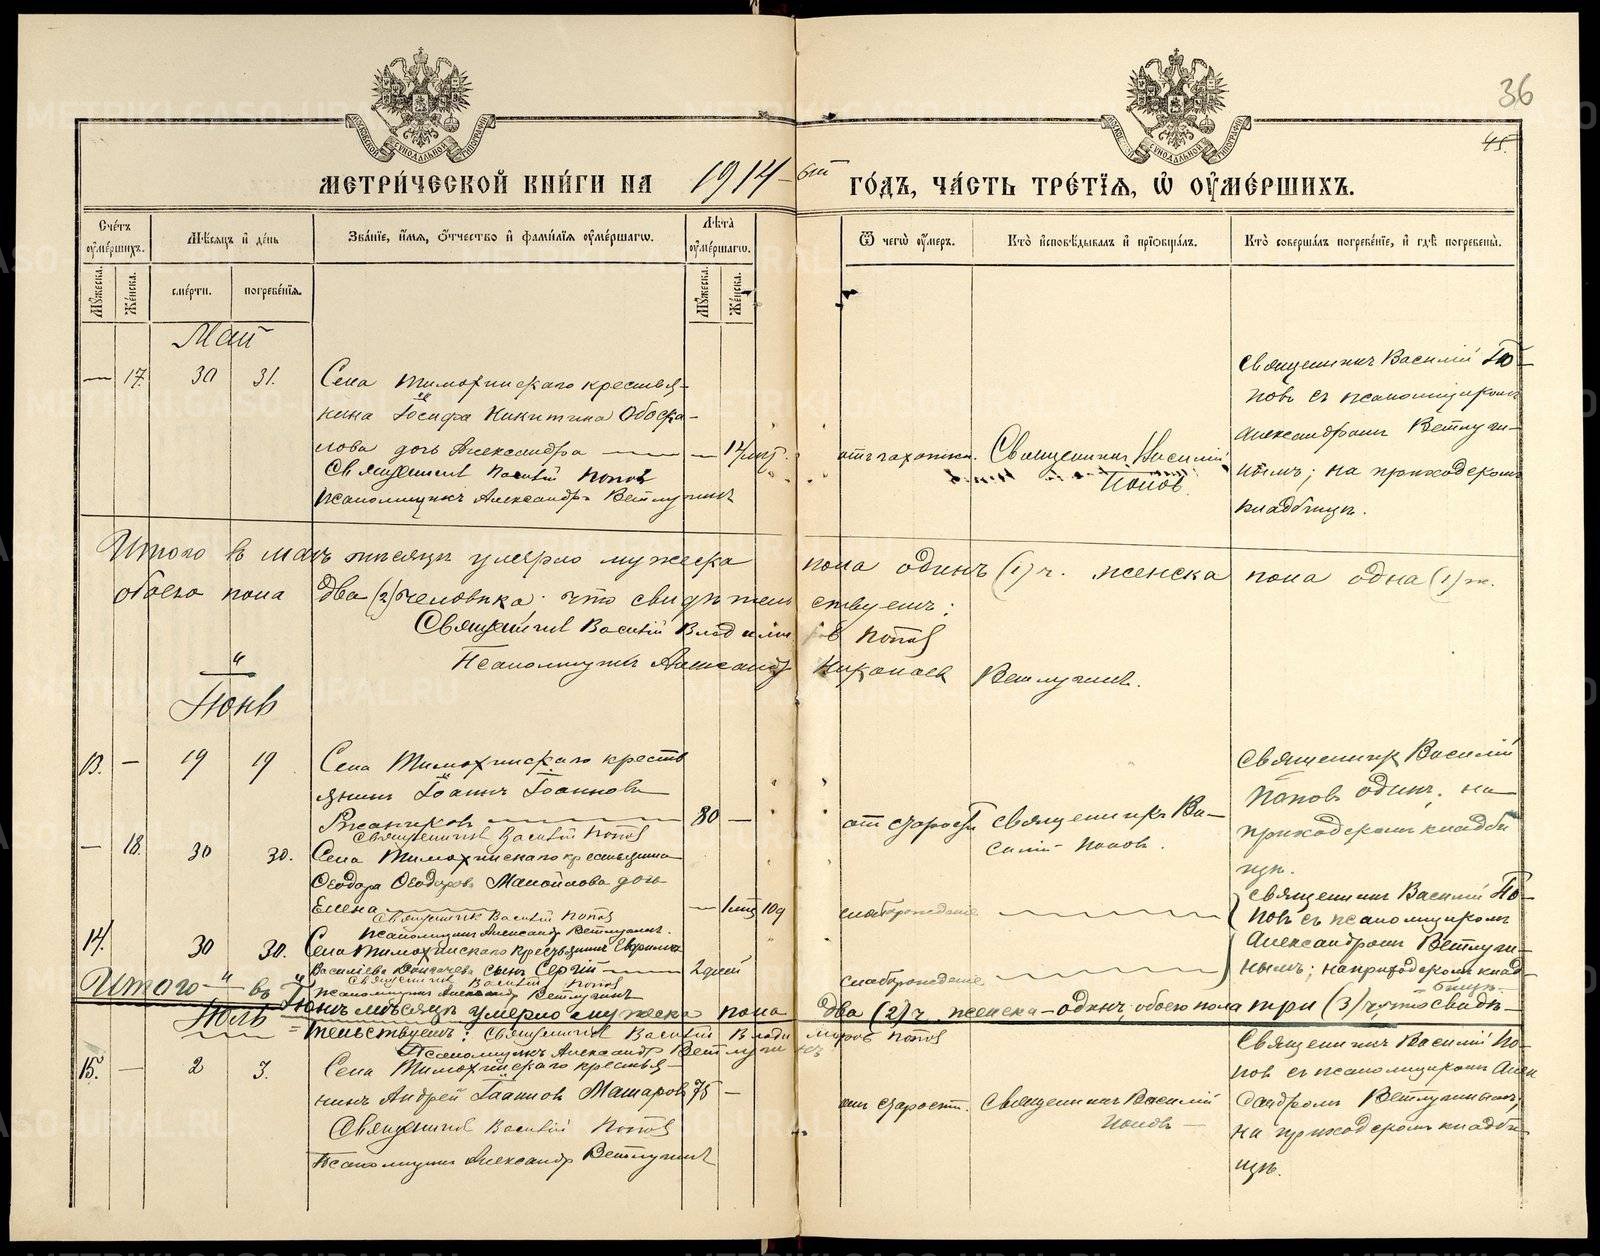 36
45.
МОСКОВСКОЙ СѴНОДАЛЬНОЙ ТИПОГРАФІИ
МОСКОВСКОЙ СѴНОДАЛЬНОЙ ТИПОГРАФІИ
МЕТРИ́ЧЕСКОЙ КНИ́ГИ НА 1914-ый ГО́ДЪ, ЧА́СТЬ ТРЕ́ТЇѦ, Ѡ҆ ОУ҆МЕ́РШИХЪ.
Сче́тъ оу҆ме́ршихъ.
Мѣ́сѧцъ и҆ де́нь
Зва́нїе, и҆́мѧ, ѻ҆́тчество и҆ фами́лїѧ оу҆ме́ршагѡ.
Лѣ́та оу҆ме́ршагѡ.
Ѿ чегѡ̀ оу҆́меръ.
Кто̀ и҆сповѣ́дывалъ и҆ прїѡбща́лъ.
Кто̀ соверша́лъ погребе́нїе, и҆ гдѣ̀ погребены̀.
Мꙋ́жеска.
Же́нска.
сме́рти.
погребе́нїѧ.
Мꙋ́жеска.
Же́нска.
Май
— 17. 30 31.
Села Тимохинскаго крестья-
нина Іосифа Никитина Обоска-
лова дочь Александра — — 14 лѣт.
Священникъ Василій Поповъ
Псаломщикъ Александръ Ветлугинъ
отъ чахотки.
Священникъ Василій
Поповъ.
Священникъ Василій По-
повъ съ псаломщикомъ
Александромъ Ветлуги-
нымъ; на приходскомъ
кладбищѣ.
Итого въ маѣ мѣсяцѣ умерло мужеска пола одинъ (1) ч. женска пола одна (1) ж.
обоего пола два (2) человѣка; что свидѣтельствуемъ:
Священникъ Василій Владиміровъ Поповъ
Псаломщикъ Александръ Николаевъ Ветлугинъ.
Іюнь
13. — 19 19
Села Тимохинскаго кресть
янинъ Іоаннъ Іоанновъ
Ржанниковъ — 80 —
Священникъ Василій Поповъ
отъ старости
Священникъ Ва-
силій Поповъ.
Священникъ Василій
Поповъ одинъ; на
приходскомъ кладби
щѣ.
— 18. 30 30.
Села Тимохинскаго крестьянина
Ѳеодора Ѳеодорова Манойлова дочь
Елена — — 1 мѣс 10 д
Священникъ Василій Поповъ
Псаломщикъ Александръ Ветлугинъ.
слаборожденіе
Священникъ Василій По-
повъ съ псаломщикомъ
Александромъ Ветлуги-
нымъ; на приходскомъ клад-
бищѣ.
14. 30 30.
Села Тимохинскаго крестьянина
сынъ Сергій — 2 дней
Священникъ Василій Поповъ
Псаломщикъ Александръ Ветлугинъ
слаборожденіе
Итого въ Іюнѣ мѣсяцѣ умерло мужеска пола два (2) ч. женска – одинъ, обоего пола три (3) ч; что свидѣ-
тельствуемъ: Священникъ Василій Владиміровъ Поповъ
Псаломщикъ Александръ Ветлугинъ
Іюль
15. — 2 3.
Села Тимохинскаго крестья-
нинъ Андрей Іоанновъ Машаровъ 75 —
Священникъ Василій Поповъ
Псаломщикъ Александръ Ветлугинъ
отъ старости.
Священникъ Василій
Поповъ —
Священникъ Василій По-
повъ съ псаломщикомъ Алек
сандромъ Ветлугинымъ,
на приходскомъ кладби-
щѣ.
METRIKI.GASO-URAL.RU